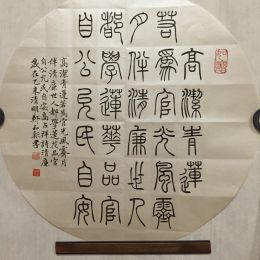 高潔青蓮
若為官光風霽
月伴清廉世人
都學蓮華品官
自公允民自安
高潔青蓮若為官光風霽月
伴清廉世人都學蓮花品官
自公允民自安詩清廉
歲在乙未清明書